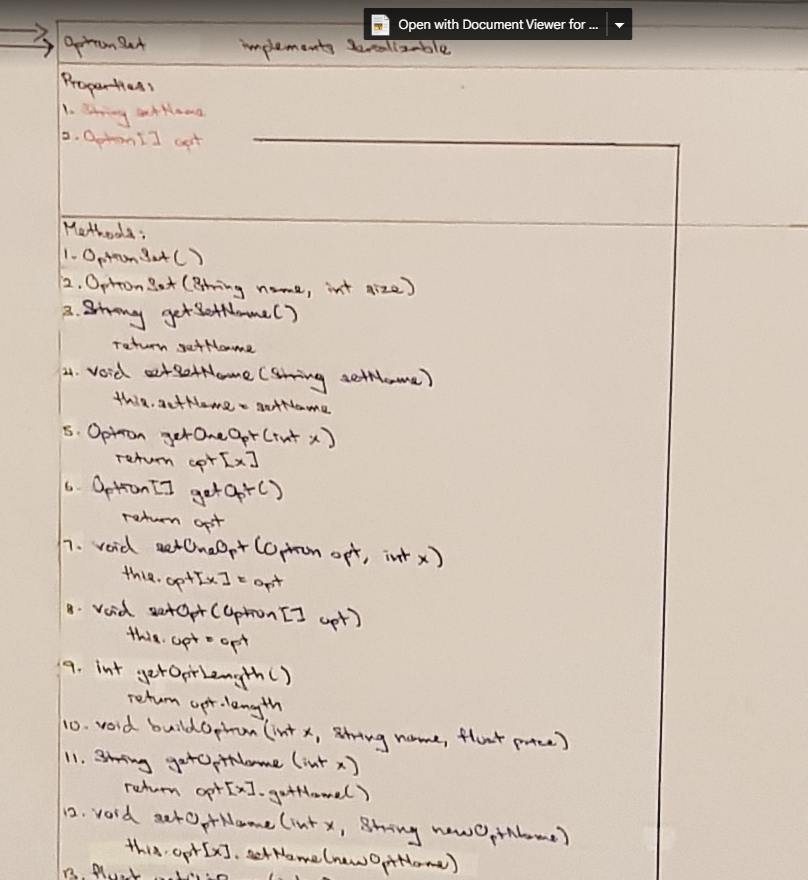 Open with Document Viewer for ...
OptionSet implements Serializable
Properties:
1. String setName
2. Option[] opt
Methods:
1. OptionSet()
2. OptionSet(String name, int size)
3. String getSetName()
return setName
4. void setSetName(String setName)
this.setName = setName
5. Option getOneOpt(int x)
return opt[x]
6. Option[] getOpt()
return opt
7. void setOneOpt(Option opt, int x)
this.opt[x] = opt
8. void setOpt(Option[] opt)
this.opt = opt
9. int getOptLength()
return opt.length
10. void buildOption(int x, String name, float price)
11. String getOptName(int x)
return opt[x].getName()
12. void setOptName(int x, String newOptName)
this.opt[x].setName(newOptName)
13. float